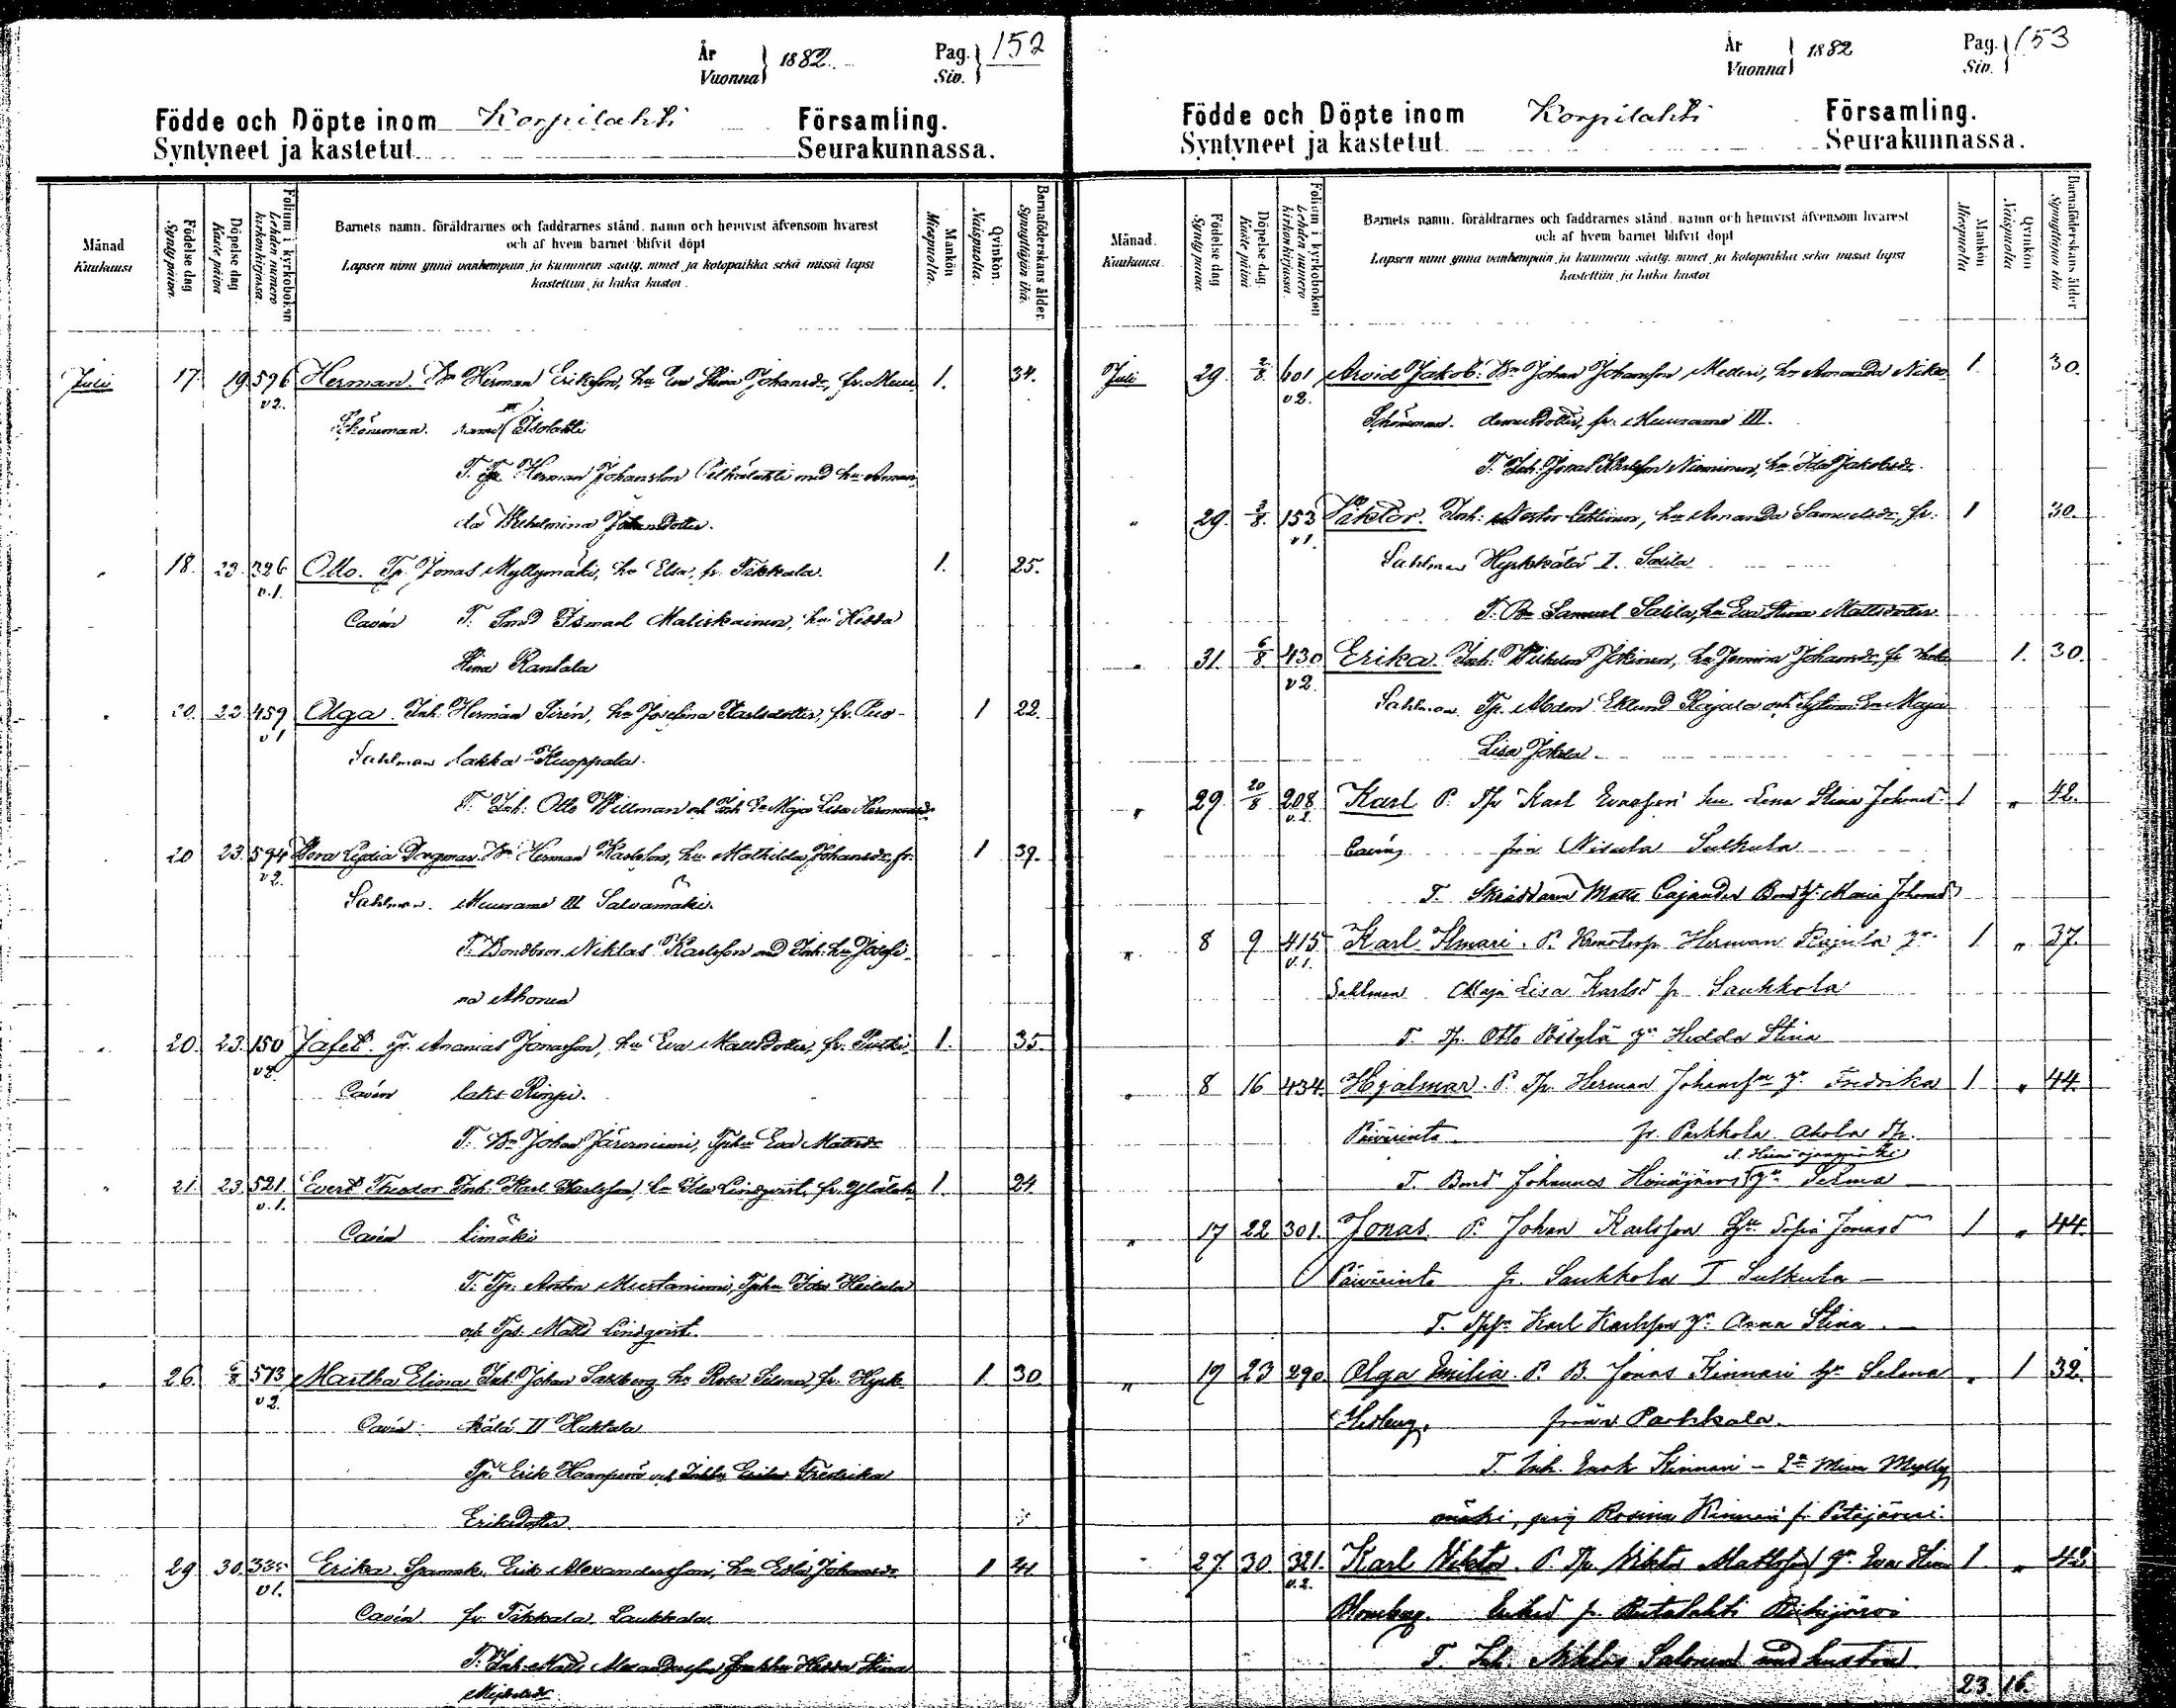 År
Vuonna } 1882.
Pag.
Siv. } 152
Födde och Döpte inom Korpilahti Församling.
Syntyneet ja kastetut Seurakunnassa.
Månad
Kuukausi
Födelse dag
Synty päivä.
Döpelse dag
Kaste päivä
Folium i kyrkoboken
Lehden numero kirkonkirjassa.
Barnets namn. föräldrarnes och faddrarnes stånd. namn och hemvist äfvensom hvarest
och af hvem barnet blifvit döpt
Lapsen nimi ynnä vanhempain ja kummein sääty. nimet ja kotopaikka sekä missä lapsi
kastettiin ja kuka kastoi.
Mankön
Miespuolta.
Qvinkön.
Naispuolta.
Barnaföderskans ålder.
Synnyttäjän ikä.
Juli 17. 19 596 Herman. Bn Herman Eriksson, hu Eva Stina Johansdr, fr. Muu- 1. 34.
v2.
Schöneman. rame III Isolahti
T. Herman Johansson med hu Aman-
da Wilhelmina Johansdotter.
" 18. 23. 326 Otto. Tp. Jonas Myllymäki, hu Elsa, fr. Tikkala. 1. 25.
v.1.
Cavén T. Smed Ismael Maliskainen, hu Hedda
Stina Rantala
" 20. 22 459 Olga. Inh. Herman Sirén, hu Josefina Karlsdotter, fr. Puo- 1 22.
v1
Sahlman lakka-Kuoppala.
T. Inh: Otto Willman och Inh En Maja Lisa Hermansdr
20 23. 594 Vera Lydia Dagmar. Bn Herman Karlsson, hu Mathilda Johansdr, fr. 1 39.
v2.
Sahlman. Muurame III Salvamäki.
T. Bondbror. Niklas Karlsson med Inh. hu Josefi-
na Ahonen
" 20. 23. 150 Jafet. Tp. Ananias Jonasson, hu Eva Mattsdotter, fr. Putki- 1. 35.
v2.
Cavén lahti Rimpi.
T. Bn Johan Järvenniemi, Tphu Eva Mattsdr
" 21. 23. 521 Evert Theodor Inh. Karl Karlsson, hu Ida Lindqvist, fr. 1. 24
v.1.
Cavén limäki
T. Tp. Anton Mustaniemi, Tphu Ida Heikala
och Tps. Matts Lindqvist.
" 26. 6/8 573 Martha Elina Inh. Johan Saxberg hu Rosa fr. Hyrk- 1. 30
v2.
Cavén kälä II Huhtala
Tp. Erik Haanperä och Fredrika
Eriksdotter.
29 30. 335 Erika. Erik Alexandersson, hu Johansdr 1 41
v1.
Cavén fr. Tikkala, Laukkala.
T. Inh. Matts Alexandersson Hedda Stina
År
Vuonna } 1882
Pag.
Siv. } 153
Födde och Döpte inom Korpilahti Församling.
Syntyneet ja kastetut Seurakunnassa.
Månad.
Kuukausi.
Födelse dag
Synty päivä.
Döpelse dag.
Kaste päivä
Folium i kyrkoboken
Lehden numero kirkonkirjassa.
Barnets namn. föräldrarnes och faddrarnes stånd. namn och hemvist äfvensom hvarest
och af hvem barnet blifvit döpt
Lapsen nimi ynnä vanhempain ja kummein sääty. nimet ja kotopaikka sekä missä lapsi
kastettiin ja kuka kastoi
Mankön
Miespuolta
Qvinkön
Naispuolta
Barnaföderskans ålder
Synnyttäjän ikä
Juli 29. 2/8 601 Arvid Jakob: Bn Johan Johansson Metteri, hu Amanda Niko- 1. 30.
v2.
Schöneman. demusdotter, fr. Muurame III.
T. Inh. Jonas Karlsson Nieminen, hu Ida Jakobsdr.
" 29. 2/8. 153 Viktor. Inh: Nestor Lehtinen, hu Amanda Samuelsdr, fr. 1 30.
v1.
Sahlman Hyrkkälä I. Salila
T. Bn Samuel Salila, hu Eva Stina Mattsdotter
" 31. 6/8 430 Erika. Inh: Wilhelm Jokinen, hu Johansdr, fr 1. 30.
v2.
Sahlman Tp. Adam Eklund Rajala och En Maja
Lisa Jokela.
" 29 20/8 208 Karl P. Tp Karl Evasson hu. Lena Stina Johansd. 1 " 42.
v.2.
Cavén från Nisula Sulkula
T. Skräddaren Matts Cajander Maria Johansd
" 8 9 415 Karl Ilmari. P. Herman Rajala hu 1. " 37.
v.1.
Sahlman Maja Lisa Karlsd fr Saukkola
T. Tp. Otto Pösylä hu Hedda Stina
" 8 16 434. Hjalmar. P. Tp. Herman Johansson hu Fredrika 1 " 44.
Päivärinta fr. Parkkola Ahola Tp.
T. Bond Johannes Heinäjärvi hu Selma
" 17 22 301. Jonas. P. Johan Karlsson hu Sofia Jonasd 1 " 44.
Päivärinta fr. Saukkola I Sulkula
T. Karl Karlsson hu Anna Stina.
" 19 23 290. Olga Emilia. P. B. Jonas Kinnari hu Selma " 1 32.
Hedberg. från Parkkala.
T. Inh. Enok Kinnari - En Mina Mylly-
mäki, pig Rosina Kinnari fr. Petäjävesi.
" 27. 30. 321. Karl Viktor. P. Tp Viktor Mattsson hu Eva Stina 1 " 42
v.2.
Blomberg. Eriksd fr. Rutalahti
T. Inh. Niklas Salonen med hustru.
23. 16.